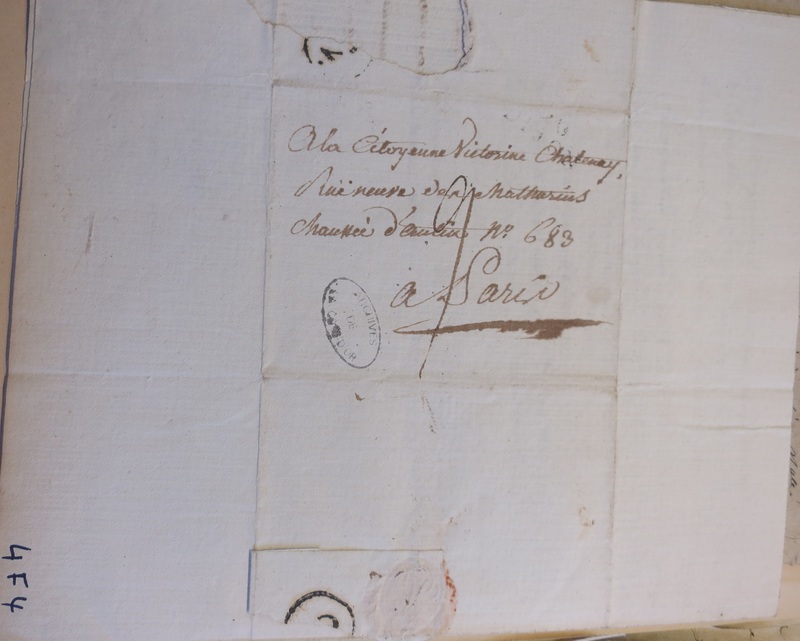 A la Citoyenne Victorine Chatenay,
Rue neuve des Mathurins
chaussée d'antin N° 683
a Paris
ARCHIVES
DE
CÔTE D'OR
4F4